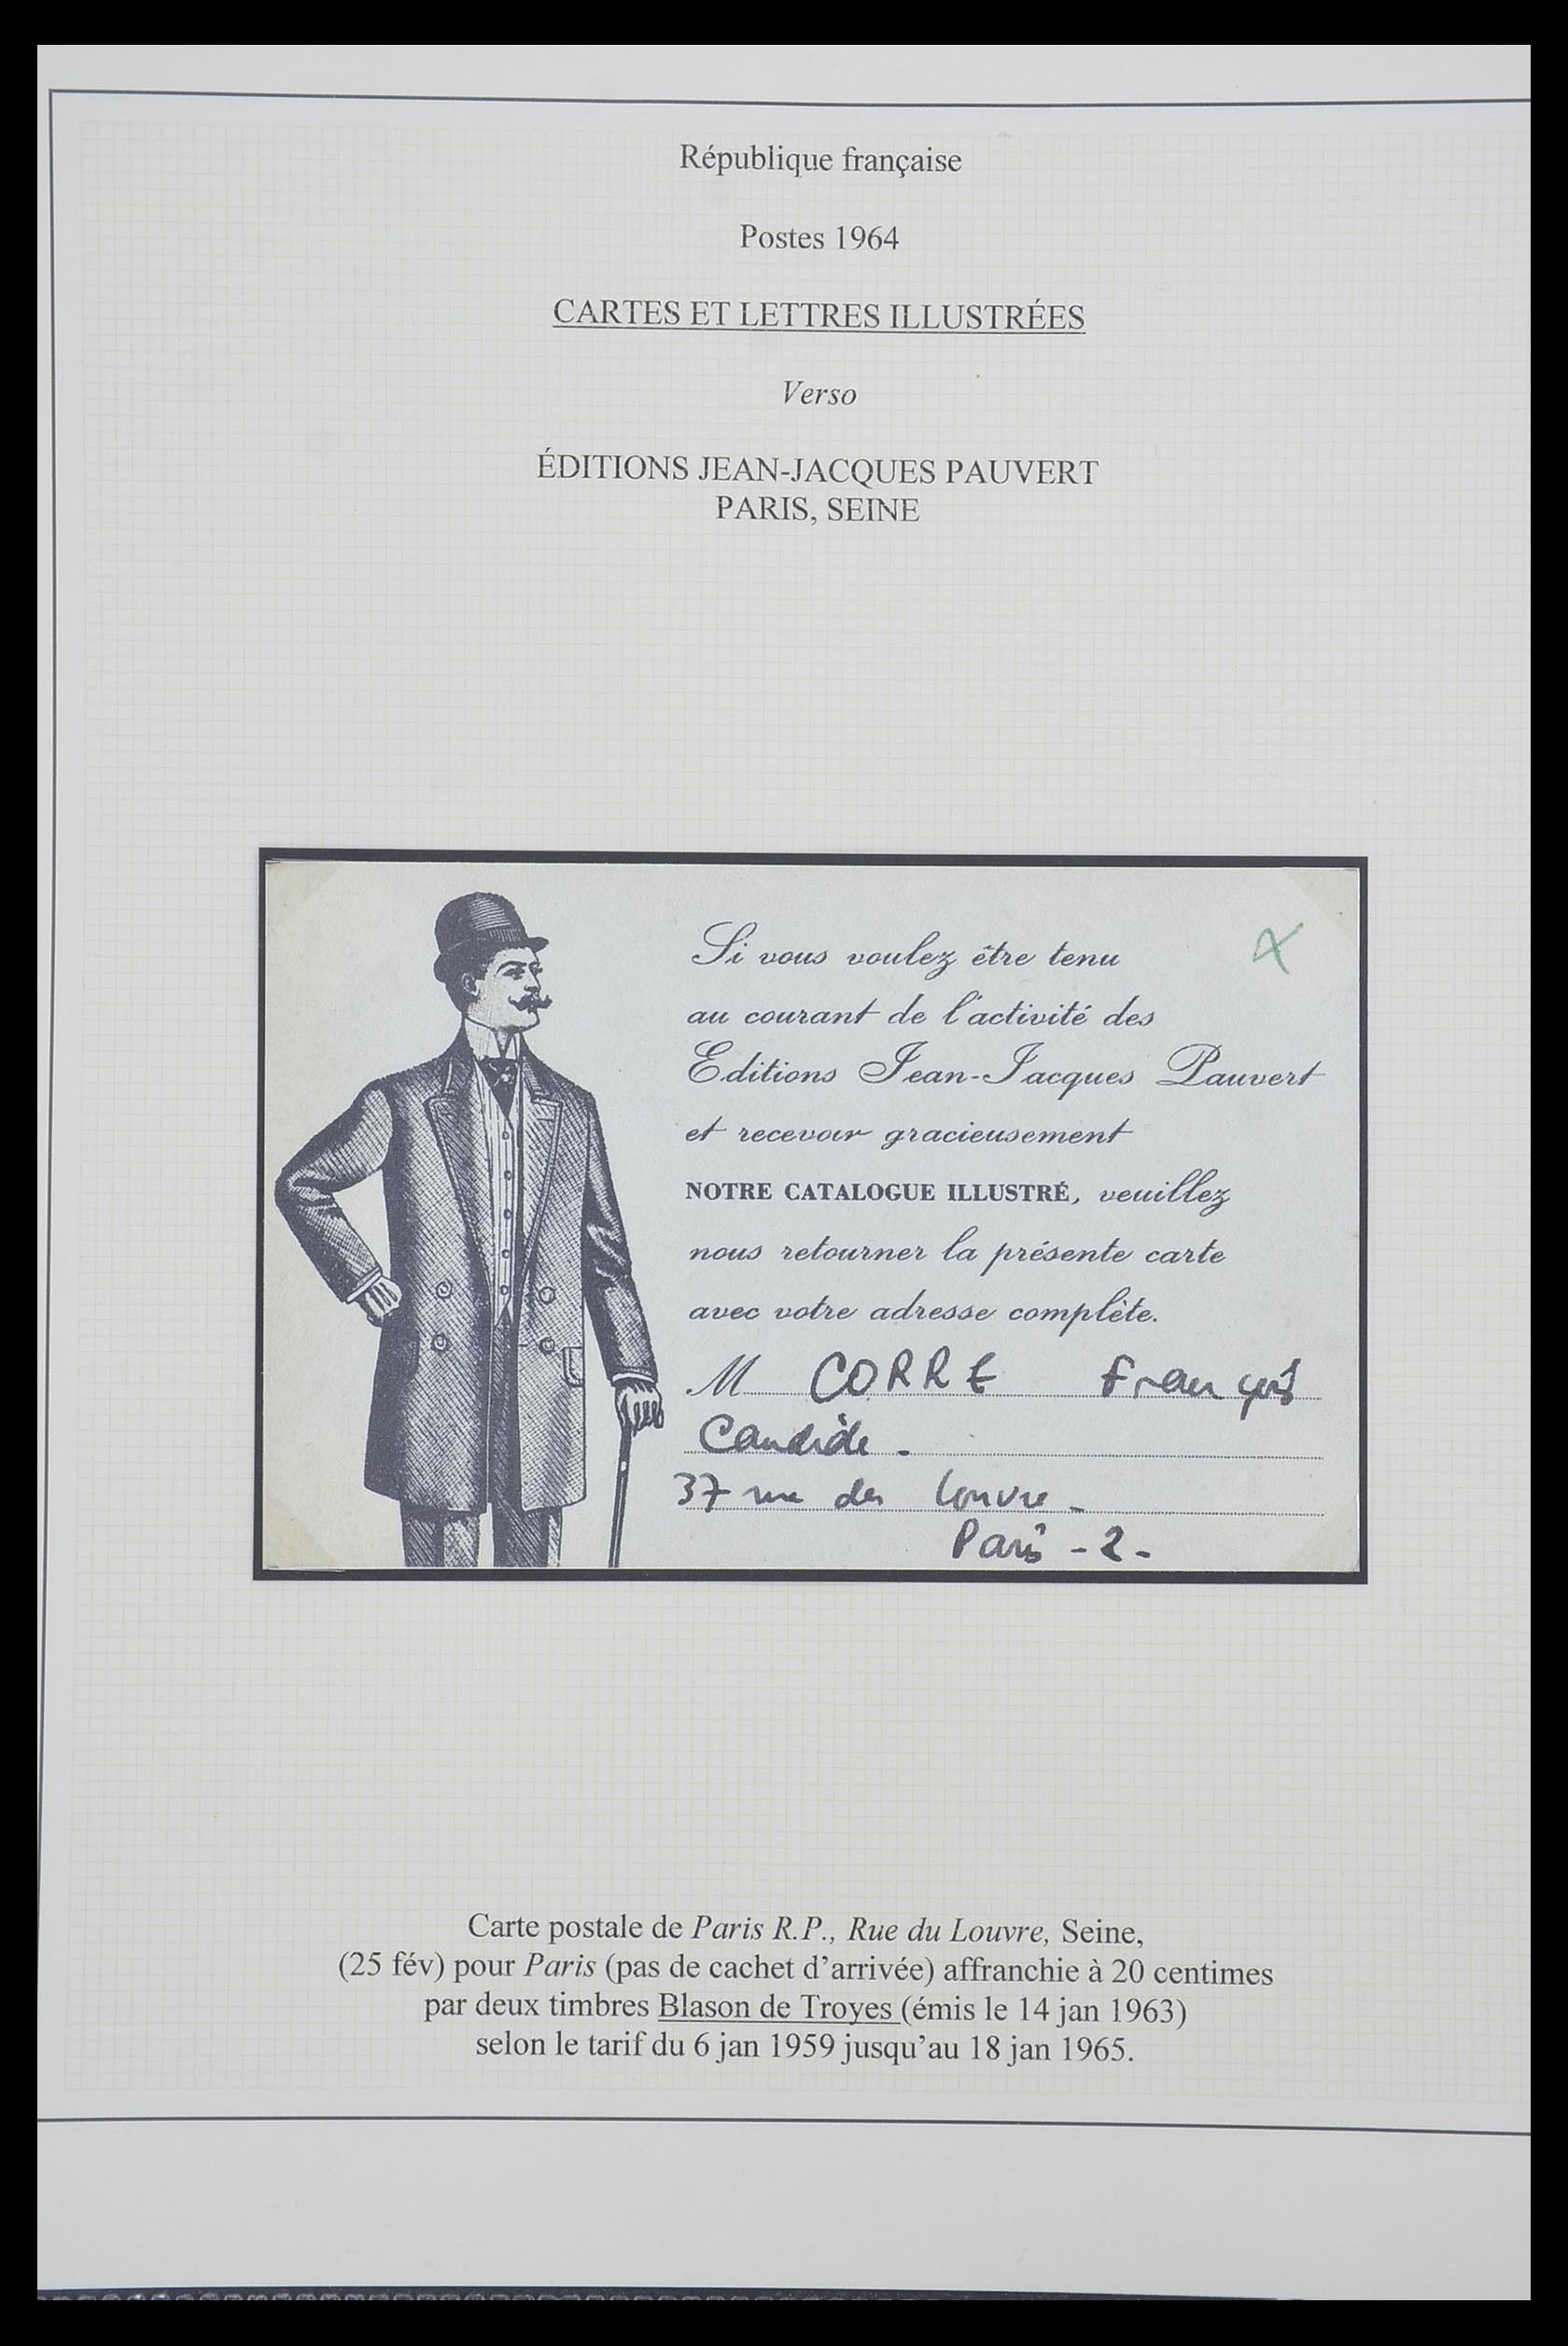 République française
Postes 1964
CARTES ET LETTRES ILLUSTRÉES
Verso
ÉDITIONS JEAN-JACQUES PAUVERT
PARIS, SEINE
Si vous voulez être tenu
au courant de l'activité des
Editions Jean-Jacques Pauvert
et recevoir gracieusement
NOTRE CATALOGUE ILLUSTRÉ, veuillez
nous retourner la présente carte
avec votre adresse complète.
M CORRE François
Candide.
37 rue du Louvre -
Paris - 2 -
Carte postale de Paris R.P., Rue du Louvre, Seine,
(25 fév) pour Paris (pas de cachet d'arrivée) affranchie à 20 centimes
par deux timbres Blason de Troyes (émis le 14 jan 1963)
selon le tarif du 6 jan 1959 jusqu'au 18 jan 1965.